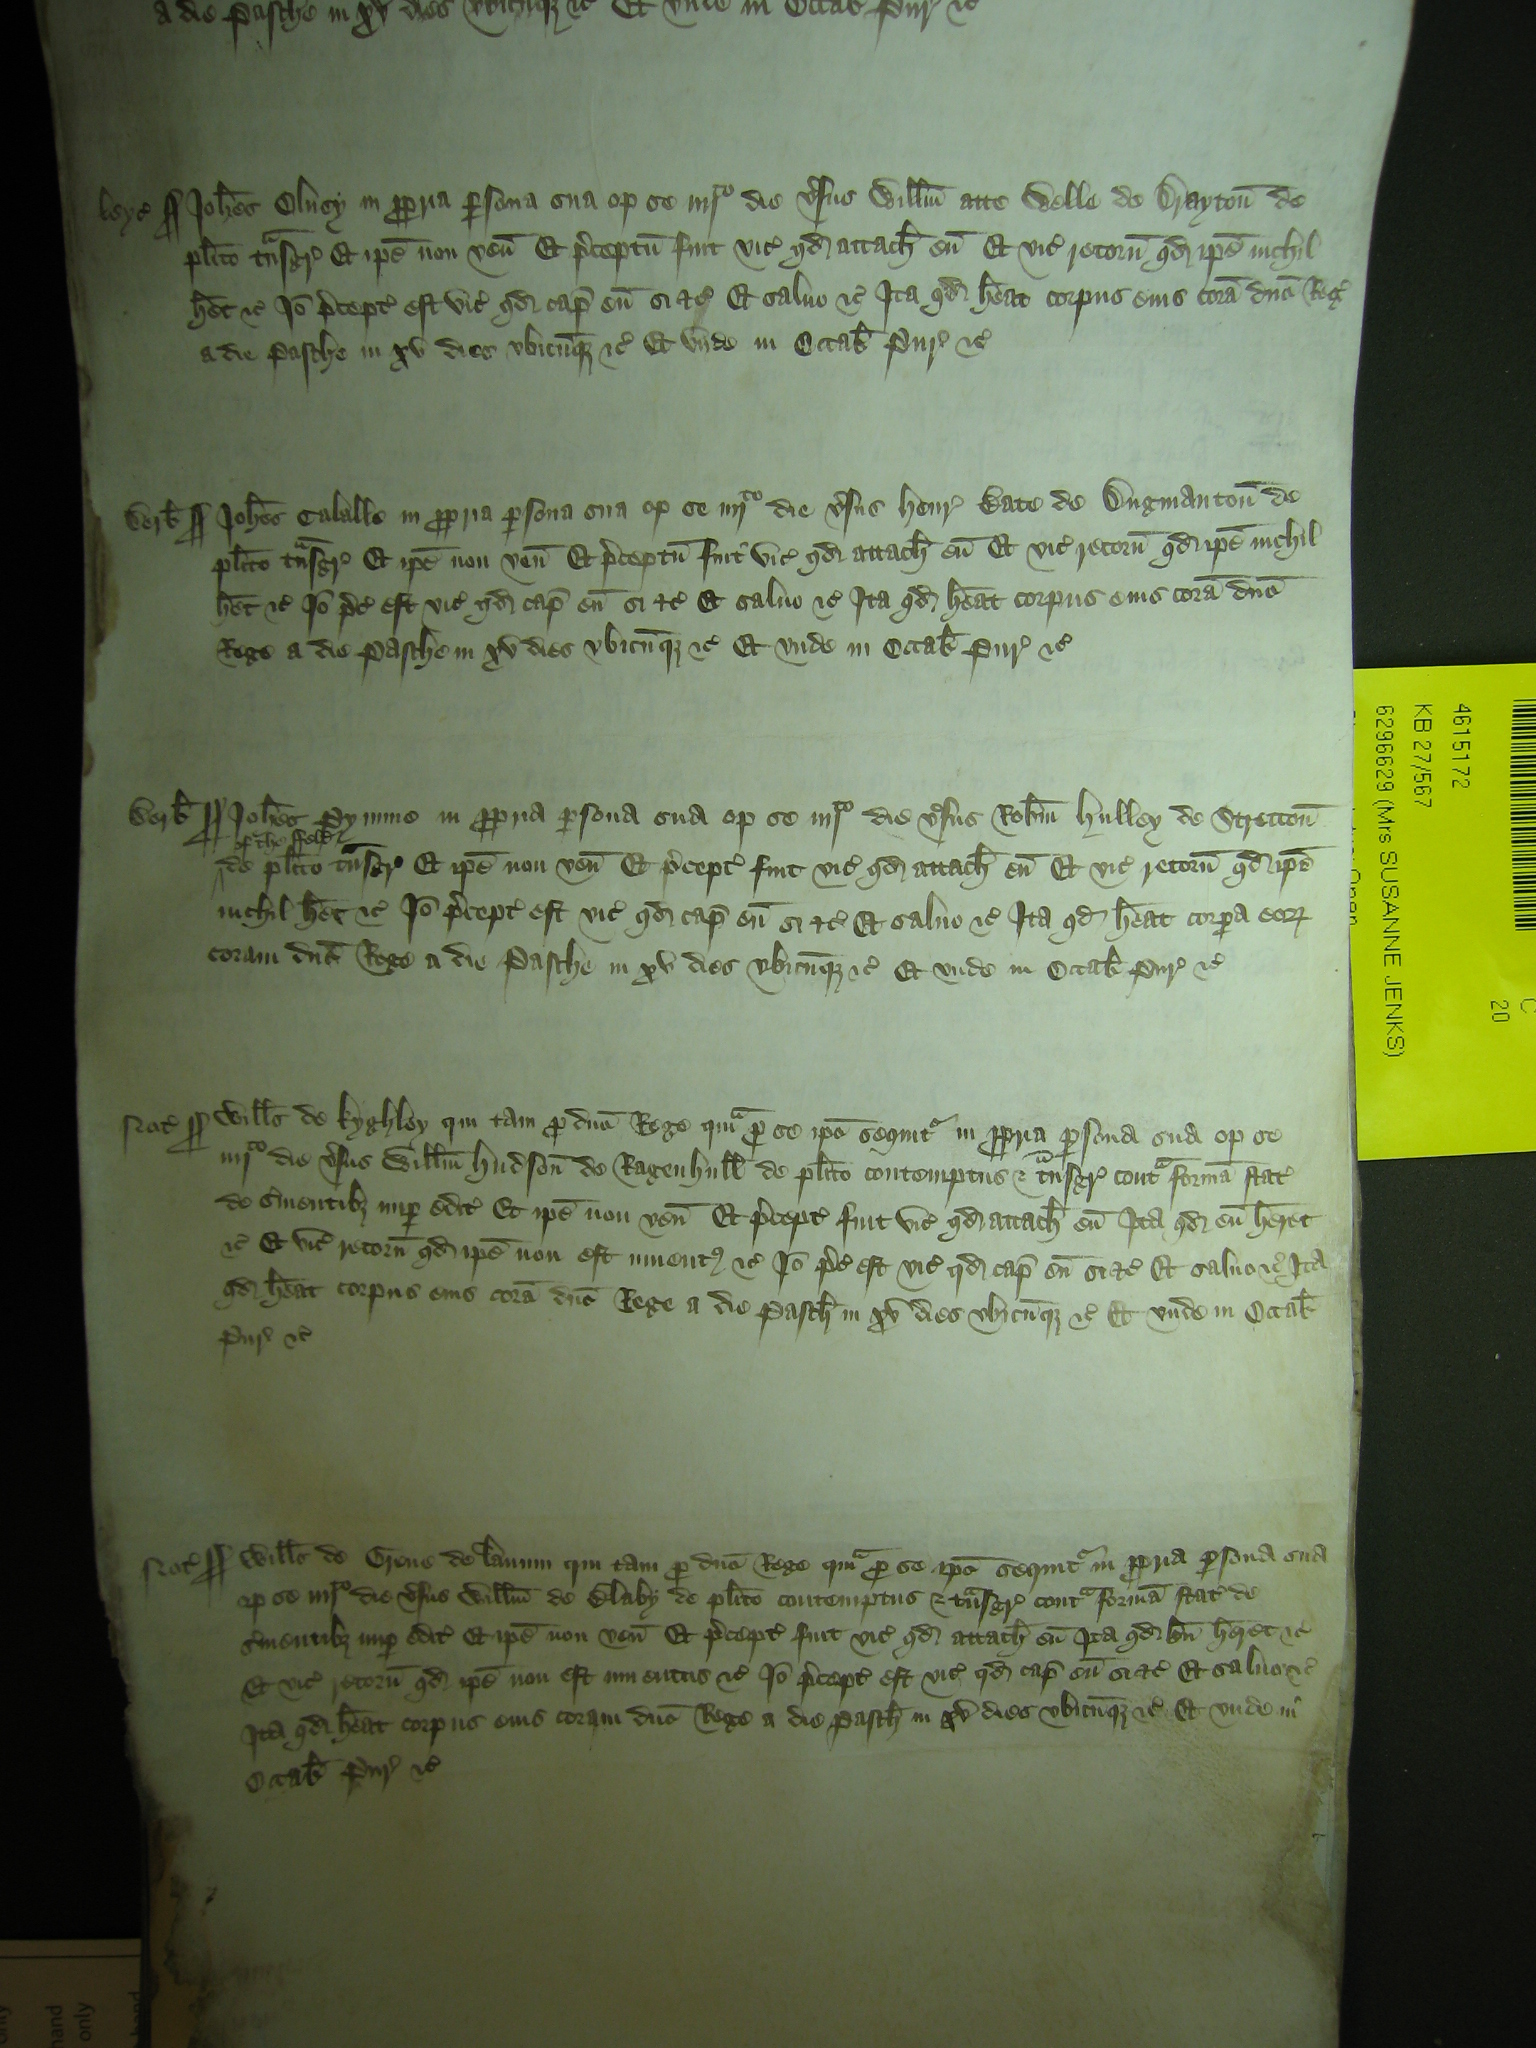 a die Pasche in xv dies vbicu̅qꝫ ⁊c̉ Et vnde in Octab̅ Pur̉ ⁊c̉
Leyc̉ ss Joh̅es Olney in ꝓpria ꝑsona sua op se iiij^to die v̉sus Willm̅ atte Welle de Drayton̅ de
pl̅ito tᵃnsgr̉ Et ip̅e non ven̅ Et p̉ceptu̅ fuit vic̉ qd̉ attach̅ eu̅ Et vic̉ retorn̅ qd̉ ip̅e nichil
h̅et ⁊c̉ Io̅ p̉cept̉ est vic̉ qd̉ cap̅ eu̅ si ⁊c̉ Et saluo ⁊c̉ Ita qd̉ h̅eat corpus eius cora̅ dn̅o Reg̉
a die Pasche in xv dies vbicu̅qꝫ ⁊c̉ Et vnde in Octab̅ Pur̉ ⁊c̉
Derb̅ ss Joh̅es Calall in ꝓpria ꝑsona sua op se iiij^to die v̉sus Henr̉ Bate de Dugmanton̅ de
pl̅ito tᵃnsgr̉ Et ip̅e non ven̅ Et p̉ceptu̅ fuit vic̉ qd̉ attach̅ eu̅ Et vic̉ retorn̅ qd̉ ip̅e nichil
h̅et ⁊c̉ Io̅ p̉c̉ est vic̉ qd̉ cap̅ eu̅ si ⁊c̉ Et saluo ⁊c̉ Ita qd̉ h̅eat corpus eius cora̅ dn̅o
Rege a die Pasche in xv dies vbicu̅qꝫ ⁊c̉ Et vnde in Octab̅ Pur̉ ⁊c̉
Derb̅ ss Joh̅es Pymme in ꝓpria ꝑsona sua op se iiij^to die v̉sus Rob̅m Hulley de Stretton̅
of the ffeld
de pl̅ito tᵃnsgr̉ Et ip̅e non ven̅ Et p̉cept̉ fuit vic̉ qd̉ attach̅ eu̅ Et vic̉ retorn̅ qd̉ ip̅e
nichil h̅et ⁊c̉ Io̅ p̉cept̉ est vic̉ qd̉ cap̅ eu̅ si ⁊c̉ Et saluo ⁊c̉ Ita qd̉ h̅eat corꝑa eoꝝ
coram dn̅o Rege a die Pasche in xv dies vbicu̅qꝫ ⁊c̉ Et vnde in Octab̅ Pur̉ ⁊c̉
Not̉ ss Will̅s de Kyghley qui tam ꝓ dn̅o Rege qᵃm ꝓ se ip̅o sequit̉ in ꝓpria ꝑsona sua op se
iiij^to die v̉sus Willm̅ Hudson̅ de Ragenhull̅ de pl̅ito contemptus ⁊ tᵃnsgr̉ contᵃ forma̅ stat̉
de s̉uientibꝫ nuꝑ edit̉ Et ip̅e non ven̅ Et p̉cept̉ fuit vic̉ qd̉ attach̅ eu̅ Ita qd̉ eu̅ h̅eret
⁊c̉ Et vic̉ retorn̅ qd̉ ip̅e non est inuentꝰ ⁊c̉ Io̅ p̉c̉ est vic̉ qd̉ cap̅ eu̅ si ⁊c̉ Et saluo ⁊c̉ Ita
qd̉ h̅eat corpus eius cora̅ dn̅o Rege a die Pasch̅ in xv dies vbicu̅qꝫ ⁊c̉ Et vnde in Octab̅
Pur̉ ⁊c̉
Not̉ ss Will̅s de qui tam ꝓ dn̅o Rege qᵃm ꝓ se ip̅o sequit̉ in ꝓpria ꝑsona sua
op se iiij^to die v̉sus Willm̅ de Blaby de pl̅ito contemptus ⁊ tᵃnsgr̉ contᵃ forma̅ stat̉ de
s̉uientibꝫ nuꝑ edit̉ Et ip̅e non ven̅ Et p̉cept̉ fuit vic̉ qd̉ attach̅ eu̅ Ita qd̉ eu̅ h̅eret ⁊c̉
Et vic̉ retorn̅ qd̉ ip̅e non est inuentus ⁊c̉ Io̅ p̉cept̉ est vic̉ qd̉ cap̅ eu̅ si ⁊c̉ Et saluo ⁊c̉
Ita qd̉ h̅eat corpus eius coram dn̅o Rege a die Pasch̅ in xv dies vbicu̅qꝫ ⁊c̉ Et vnde in
Octab̅ Pur̉ ⁊c̉
4615172
KB 27/567
6296629 (Mrs SUSANNE JENKS)
C
20
only
hand
only
hand